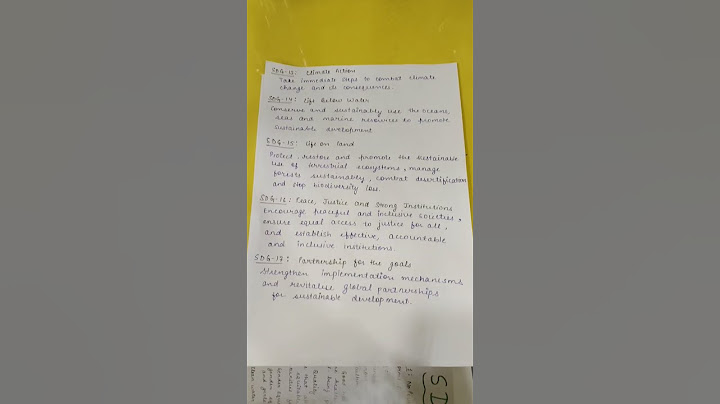 SDG-13: Climate Action
Take immediate steps to combat climate
change and its consequences.
SDG-14: Life Below Water
Conserve and sustainably use the oceans,
seas and marine resources to promote
sustainable development
SDG-15: Life on land
Protect, restore and promote the sustainable
use of terrestrial ecosystems, manage
forests sustainably, combat desertification
and stop biodiversity loss.
SDG-16: Peace, Justice and Strong Institutions
Encourage peaceful and inclusive societies,
ensure equal access to justice for all,
and establish effective, accountable
and inclusive institutions.
SDG-17: Partnership for the goals
Strengthen implementation mechanisms
and revitalise global partnerships
for sustainable development.